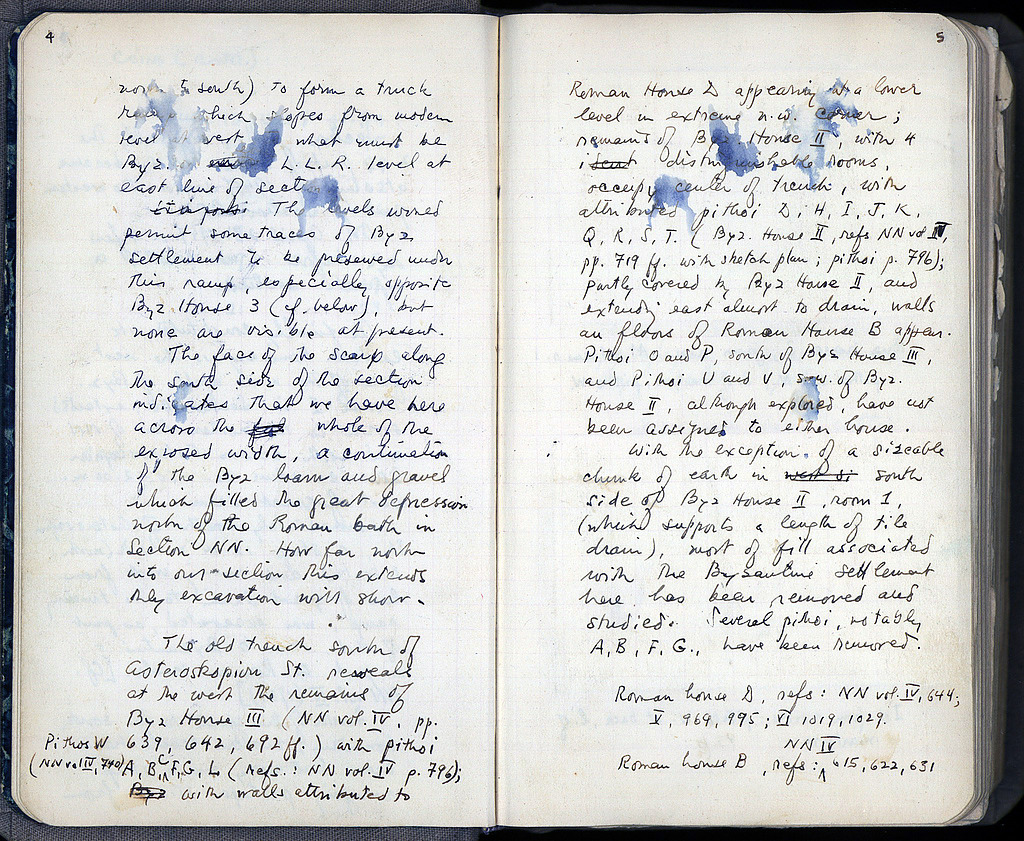 4
north to south) to form a truck
ramp which slopes from modern
level at west to what must be
Byz. or L. L. R. level at
east line of section.
The levels would
permit some traces of Byz
settlement to be preserved under
this ramp, especially opposite
Byz House 3 (cf. below), but
none are visible at present.
The face of the scarp along
the south side of the section
indicates that we have here
across the whole of the
exposed width, a continuation
of the Byz loam and gravel
which filled the great depression
north of the Roman bath in
Section NN. How far north
into our section this extends
only excavation will show.
The old trench south of
Asteroskopion St. reveals
at the west the remains of
Byz House III (NN vol. IV, pp.
639, 642, 692 ff.) with pithoi
Pithos W
(NN vol IV, 740)
A, B, C, F, G, L (refs.: NN vol. IV p. 796);
Byz with walls attributed to
5
Roman House D appearing at a lower
level in extreme n.w. corner;
remains of Byz House II, with 4
distinguishable rooms,
occupy center of trench, with
attributed pithoi D, H, I, J, K,
Q, R, S, T. (Byz. House II, refs NN vol IV,
pp. 719 ff. with sketch plan; pithoi p. 796);
partly covered by Byz House II, and
extending east almost to drain, walls
an floors of Roman House B appear.
Pithoi O and P, south of Byz House III,
and Pithoi U and V, s.w. of Byz.
House II, although explored, have not
been assigned to either house.
With the exception of a sizeable
chunk of earth in south
side of Byz House II, room 1,
(which supports a length of tile
drain), most of fill associated
with the Byzantine settlement
here has been removed and
studied. Several pithoi, notably
A, B, F, G., have been removed.
Roman house D, refs: NN vol. IV, 644;
V, 969, 995; VI 1019, 1029.
NN IV
Roman house B, refs: 615, 622, 631